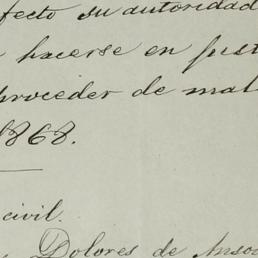 fecto su autoridad
hacerse en just
proceder de mal
1868.
civil.
Dolores de Anso